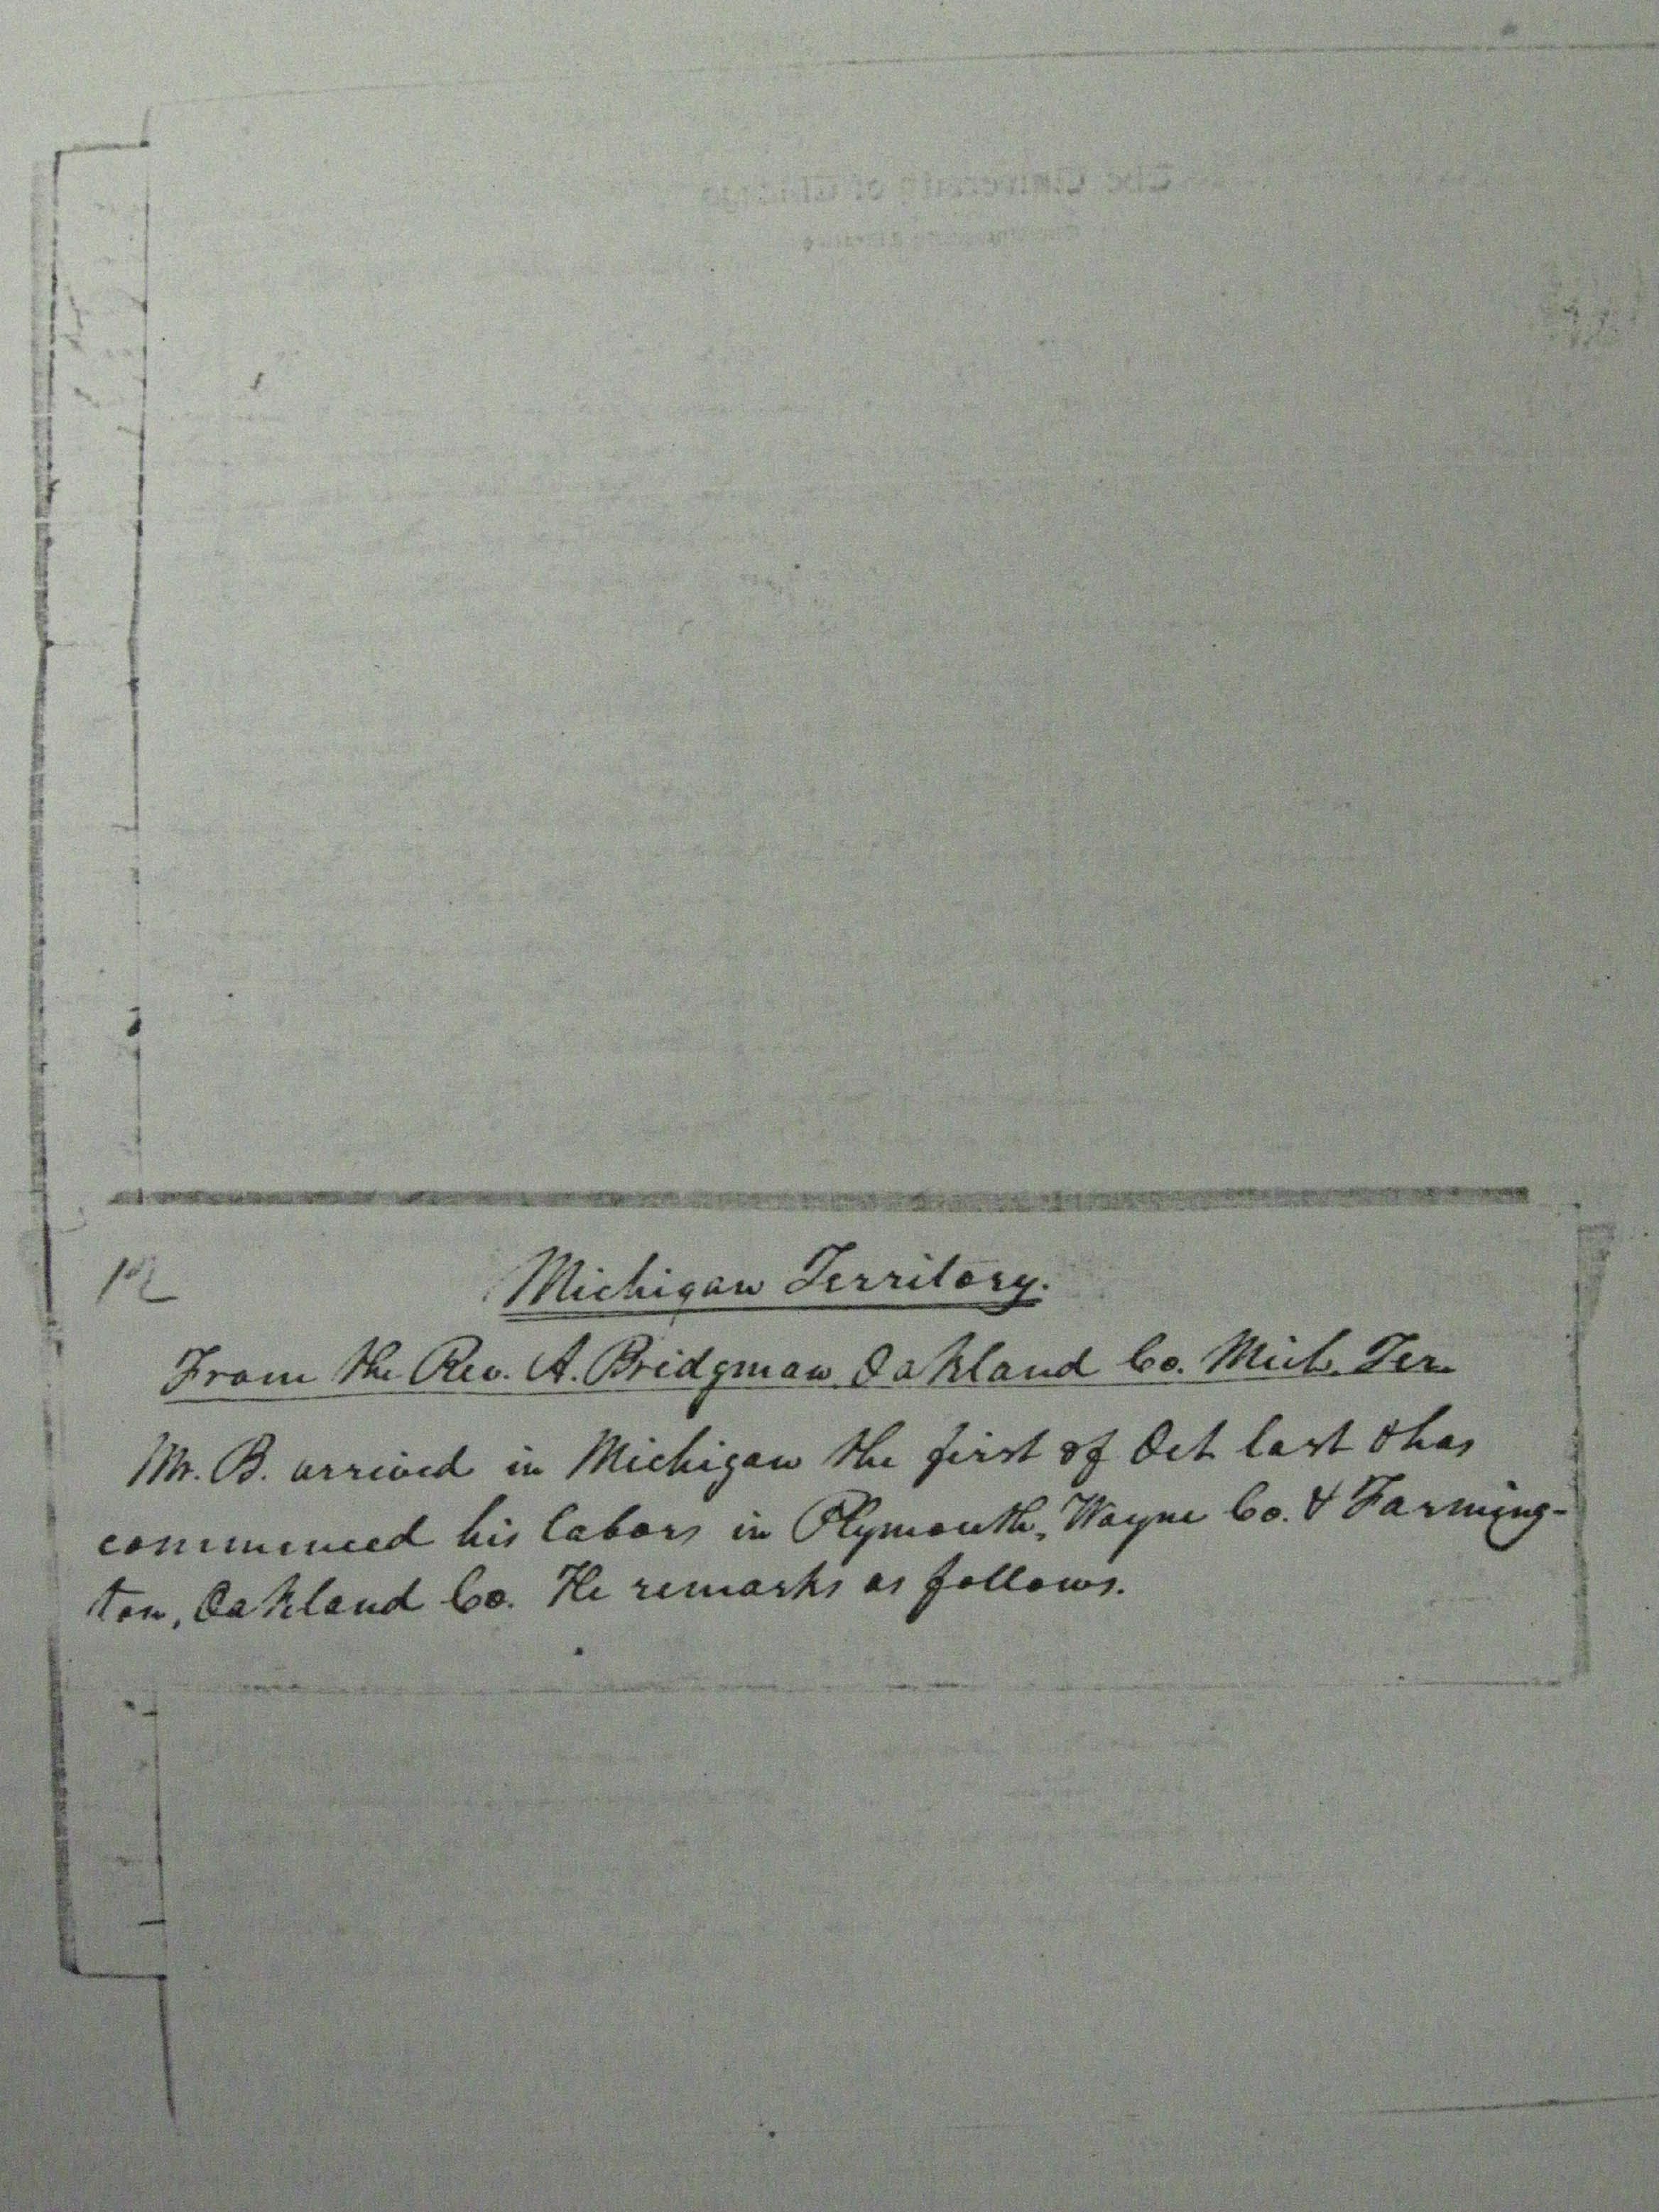 The University of Chicago
12
Michigan Territory.
From the Rev. A. Bridgman Oakland Co. Mich. Ter.
Mr. B. arrived in Michigan the first of Oct last & has
commenced his labors in Plymouth, Wayne Co. & Farming-
ton, Oakland Co. He remarks as follows.